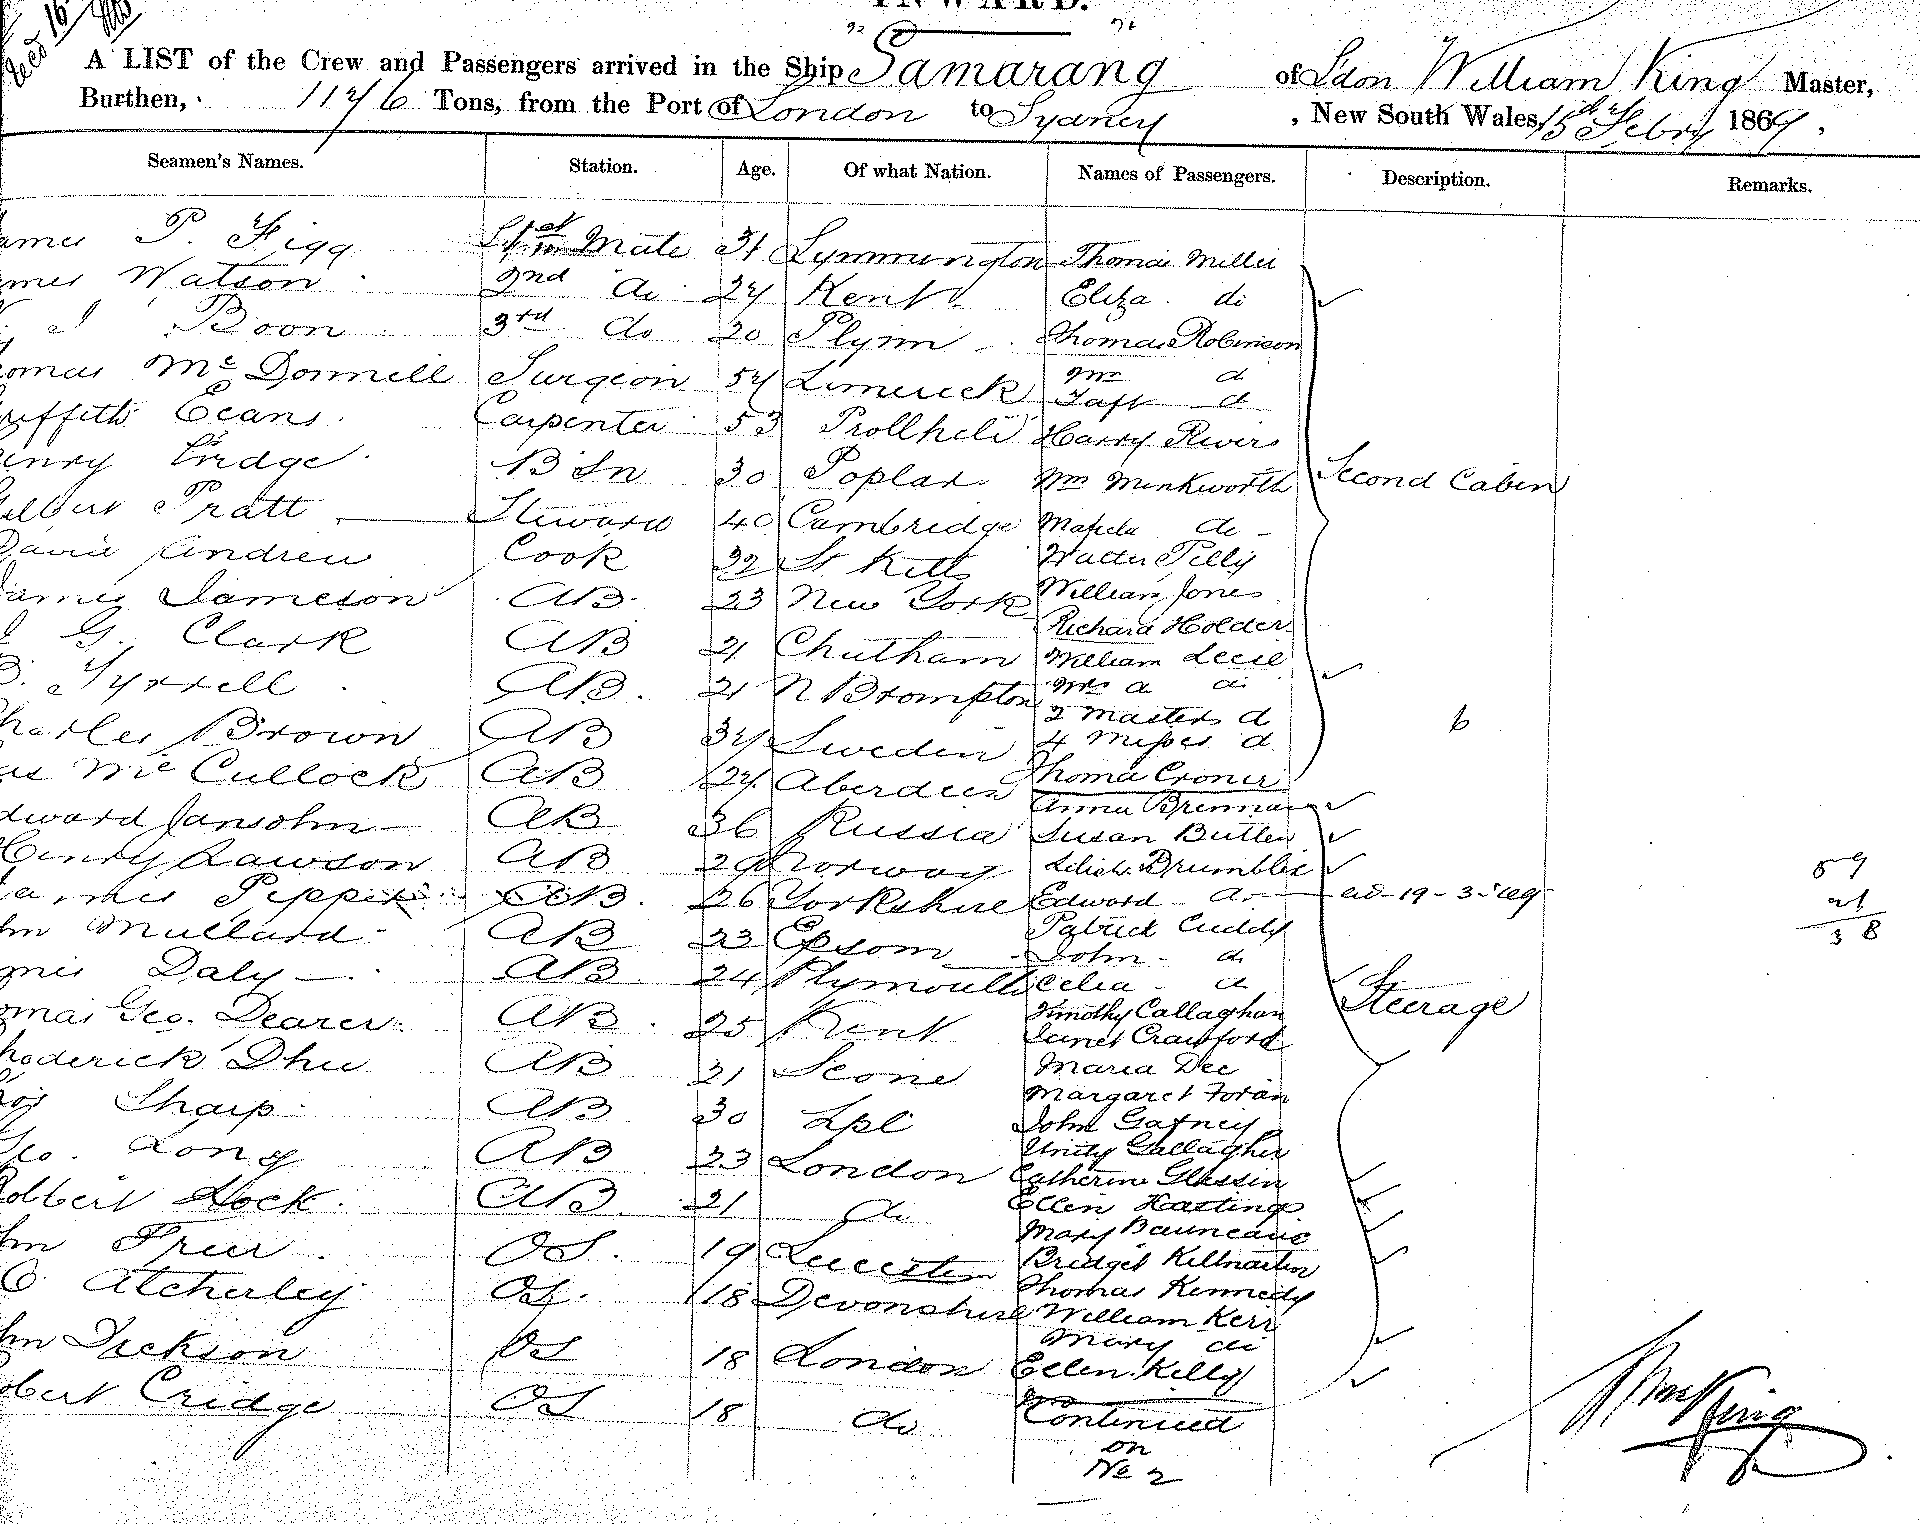 INWARD.
A LIST of the Crew and Passengers arrived in the Ship Samarang of Ldon William King Master,
Burthen, 1126 Tons, from the Port of London to Sydney, New South Wales, 15th Febry 1869.
Seamen's Names. Station. Age. Of what Nation. Names of Passengers. Description. Remarks.
ames P. Figg 1st Mate 31 Lymmington Thomas Miller
mes Watson 2nd do 24 Kent Eliza do
J Boon 3rd do 20 Plymn Thomas Robinson
omas McDonnell Surgeon 54 Limerick Mrs d
riffith Evans Carpenter 53 Prollheli Harry Rivers
enry Bridge BSn 30 Poplar Wm Minkworth Second Cabin
Pratt Steward 40 Cambridge do
David Andrew Cook 32 St Kitts Walter Pilly
James Jameson AB 23 New York William Jones
Richard Holder
G. Clark AB 21 Chatham William Lecil
Tyrrell AB. 21 N Brompton Mrs d do
2 Masters d
harles Brown AB 34 Sweden 4 Misses d 6
as McCullock AB 24 Aberdeen Thomas Croner
dward Jansohn AB 36 Russia Anna Brennan
Susan Butler
Henry Lawson AB 29 Norway Drumbler 59
James Pepper AB. 26 Yorkshire Edward do 19-3- 21
hn Mullard AB 23 Epsom Patrick Cuddy 38
John d
mes Daly AB 24 Plymouth Celia d
omas Geo. Dearer AB 25 Kent Timothy Callaghan Steerage
Janet Crawford
hoderick Dhu AB 21 Scone Maria Dee
Margaret Foran
Sharp AB 30 Lpl John Gafney
Geo. Long AB 23 London Unity Gallagher
Catherine Glassin
Robbert Lock AB 21 do Ellen Hastings
Mary
hn Freer OS. 19 Leicester Bridget Killmartin
Atcherley OS. 18 Devonshire Thomas Kennedy
William Kerr
hn Dickson OS 18 London Mary do
Ellen Kelly
obert Cridge OS 18 do Continued
on
No 2
Wm King